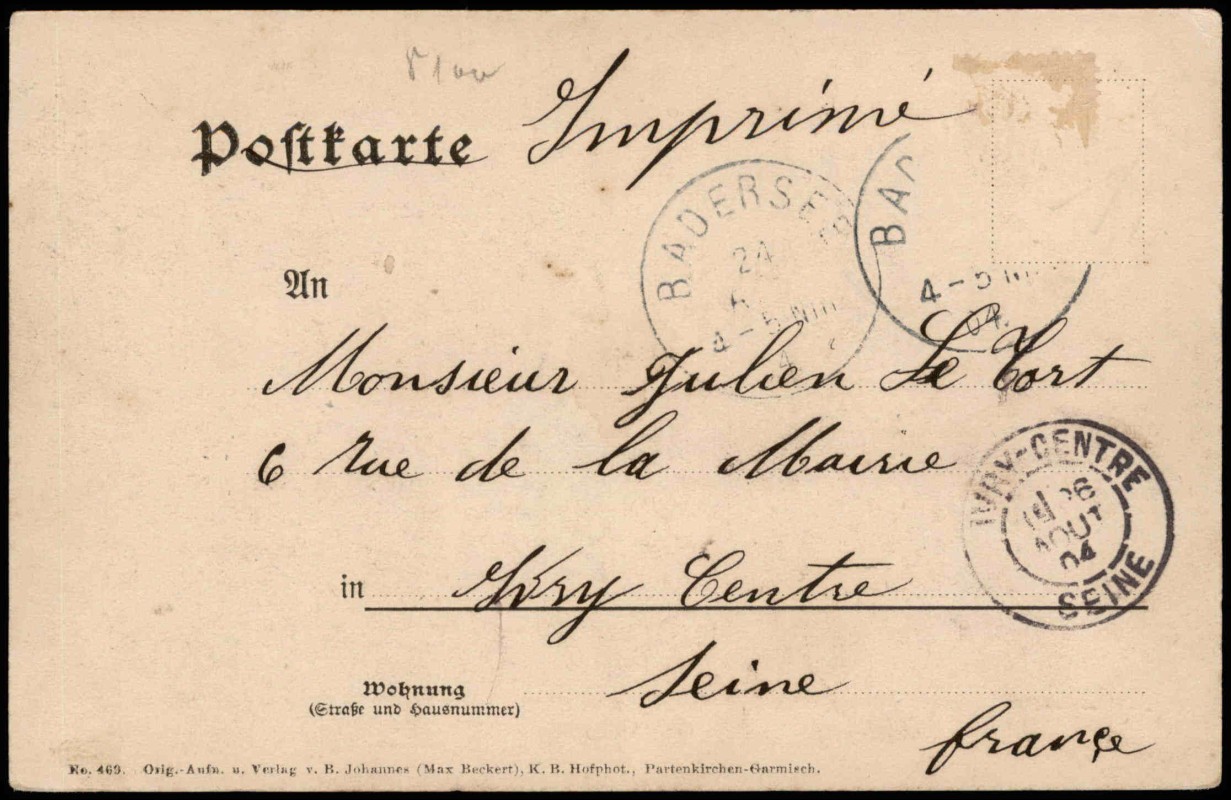 Postkarte Imprimé
BADERSEE
24
4-5 Nm
BAD
4-5 N
04.
An
Monsieur Julien Le Tort
6 rue de la Mairie
IVRY-CENTRE
26
AOUT
04
SEINE
in Ivry Centre
Seine
Wohnung
(Straße und Hausnummer)
france
No. 469. Orig.-Aufn. u. Verlag v. B. Johannes (Max Beckert), K. B. Hofphot., Partenkirchen-Garmisch.